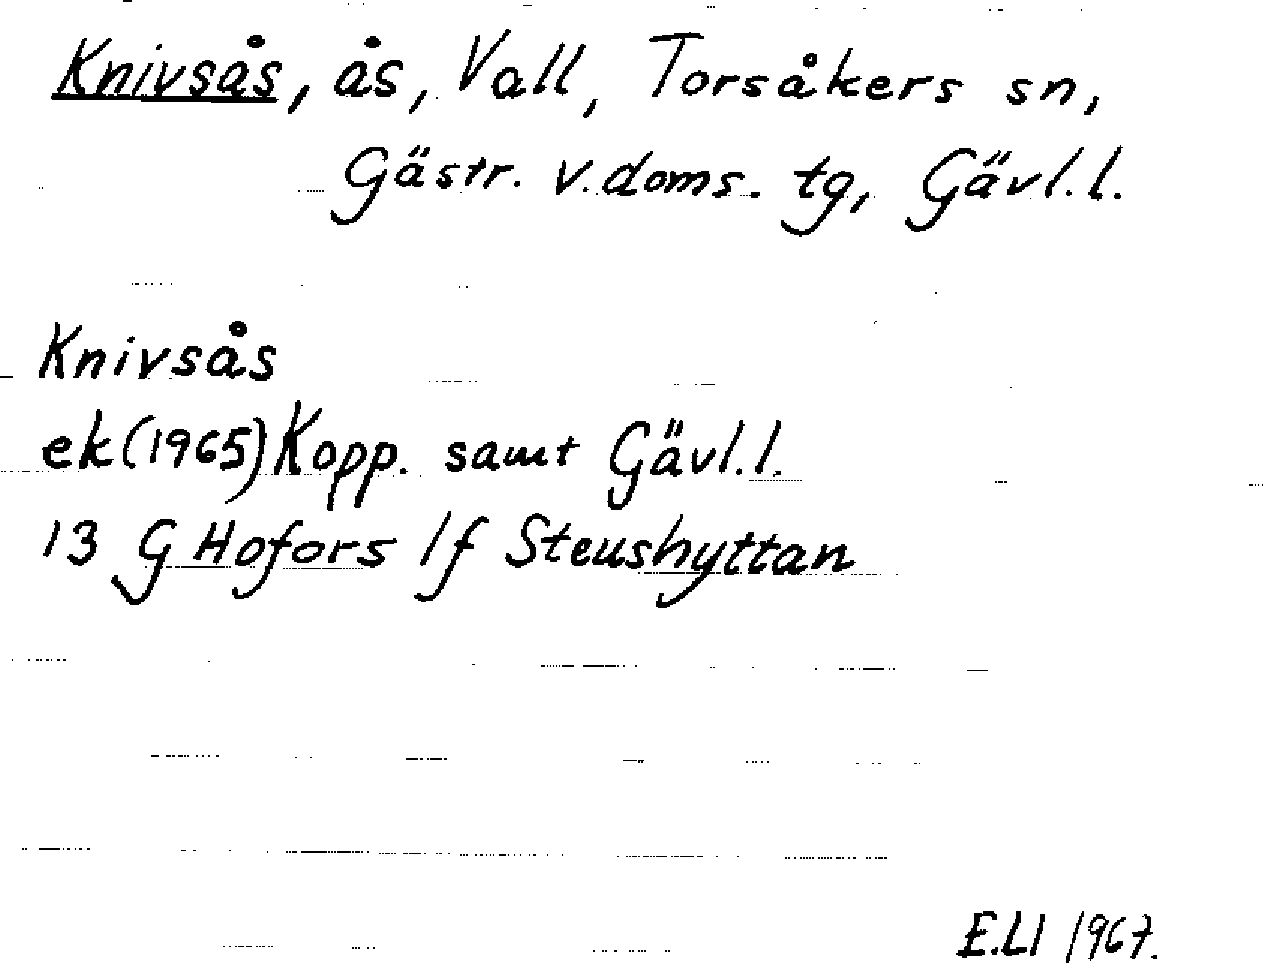 Knivsås, ås, Vall, Torsåkers sn,
Gästr. v. doms. tg, Gävl. l.
Knivsås
ek (1965) Kopp. samt Gävl. l.
13 G Hofors lf Stenshyttan
E.Ll 1967.